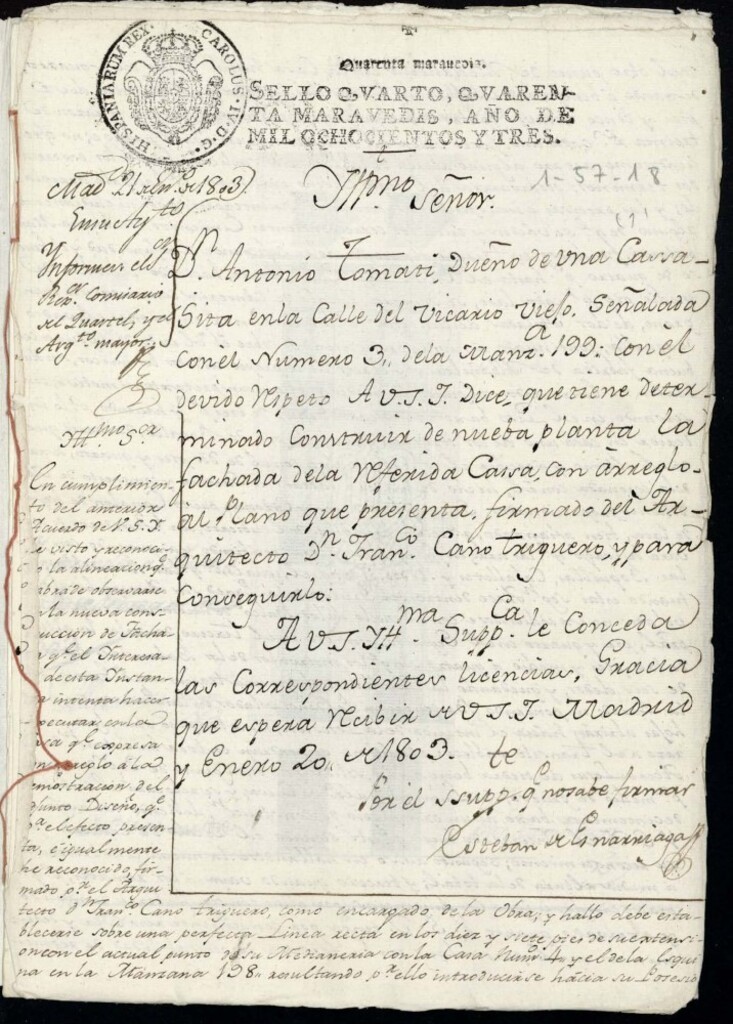 HISPANIARUM REX. CAROLUS. IV. D. G.
Quarenta maravedis.
SELLO QVARTO, QVAREN-
TA MARAVEDIS, AÑO DE
MIL OCHOCIENTOS Y TRES.
1-57-18
(1)
Yllmo Señor.
Dn. Antonio Tomati, Dueño de vna Cassa
Sita en la Calle del Vicario Viejo, Señalada
con el Numero 3,, de la Manza. 199: con el
devido Respeto A V.S.I. Dice, que tiene deter-
minado Construir de nueba planta la
fachada de la Referida Cassa, con arreglo
al plano que presenta, firmado del Ar-
quitecto Dn. Franco. Cano triguero, y para
Conseguirlo:
A V.S. Yllma. Suppca. le Conceda
las Correspondientes licencias, Gracia
que espera Recibir de V.S.I. Madrid
y Enero 20,, de 1803.
Por el Suppte. qe no sabe firmar
Esteban de
Madd. 21 de Eno. de 1803
En su Aytto
Informen el
Comisario
del Quartel, y el
Argto mayor.
Yllmo Sor
En cumplimien-
to del anterior
Acuerdo de V.S.I.
he visto y reconoci-
do la alineacion qe
abra de observarse
en la nueva cons-
truccion de Facha-
da qe el Interesa-
do de esta Instan-
cia intenta hacer
executar en la
Casa qe expresa
con arreglo a la
demostracion del
adjunto Diseño, qe
pa. el efecto presen-
ta, e igualmente
he reconocido, fir-
mado pr. el Arqui-
tecto dn Franco Cano triguero, como encargado de la Obra; y hallo debe esta-
blecerse sobre una perfecta Linea recta en los diez y siete pies de su extensi-
on con el actual punto de su Medianeria con la Casa Numo 4 y el de la Esqui-
na en la Manzana 198,, resultando pr ello introducirse hácia su Posesio